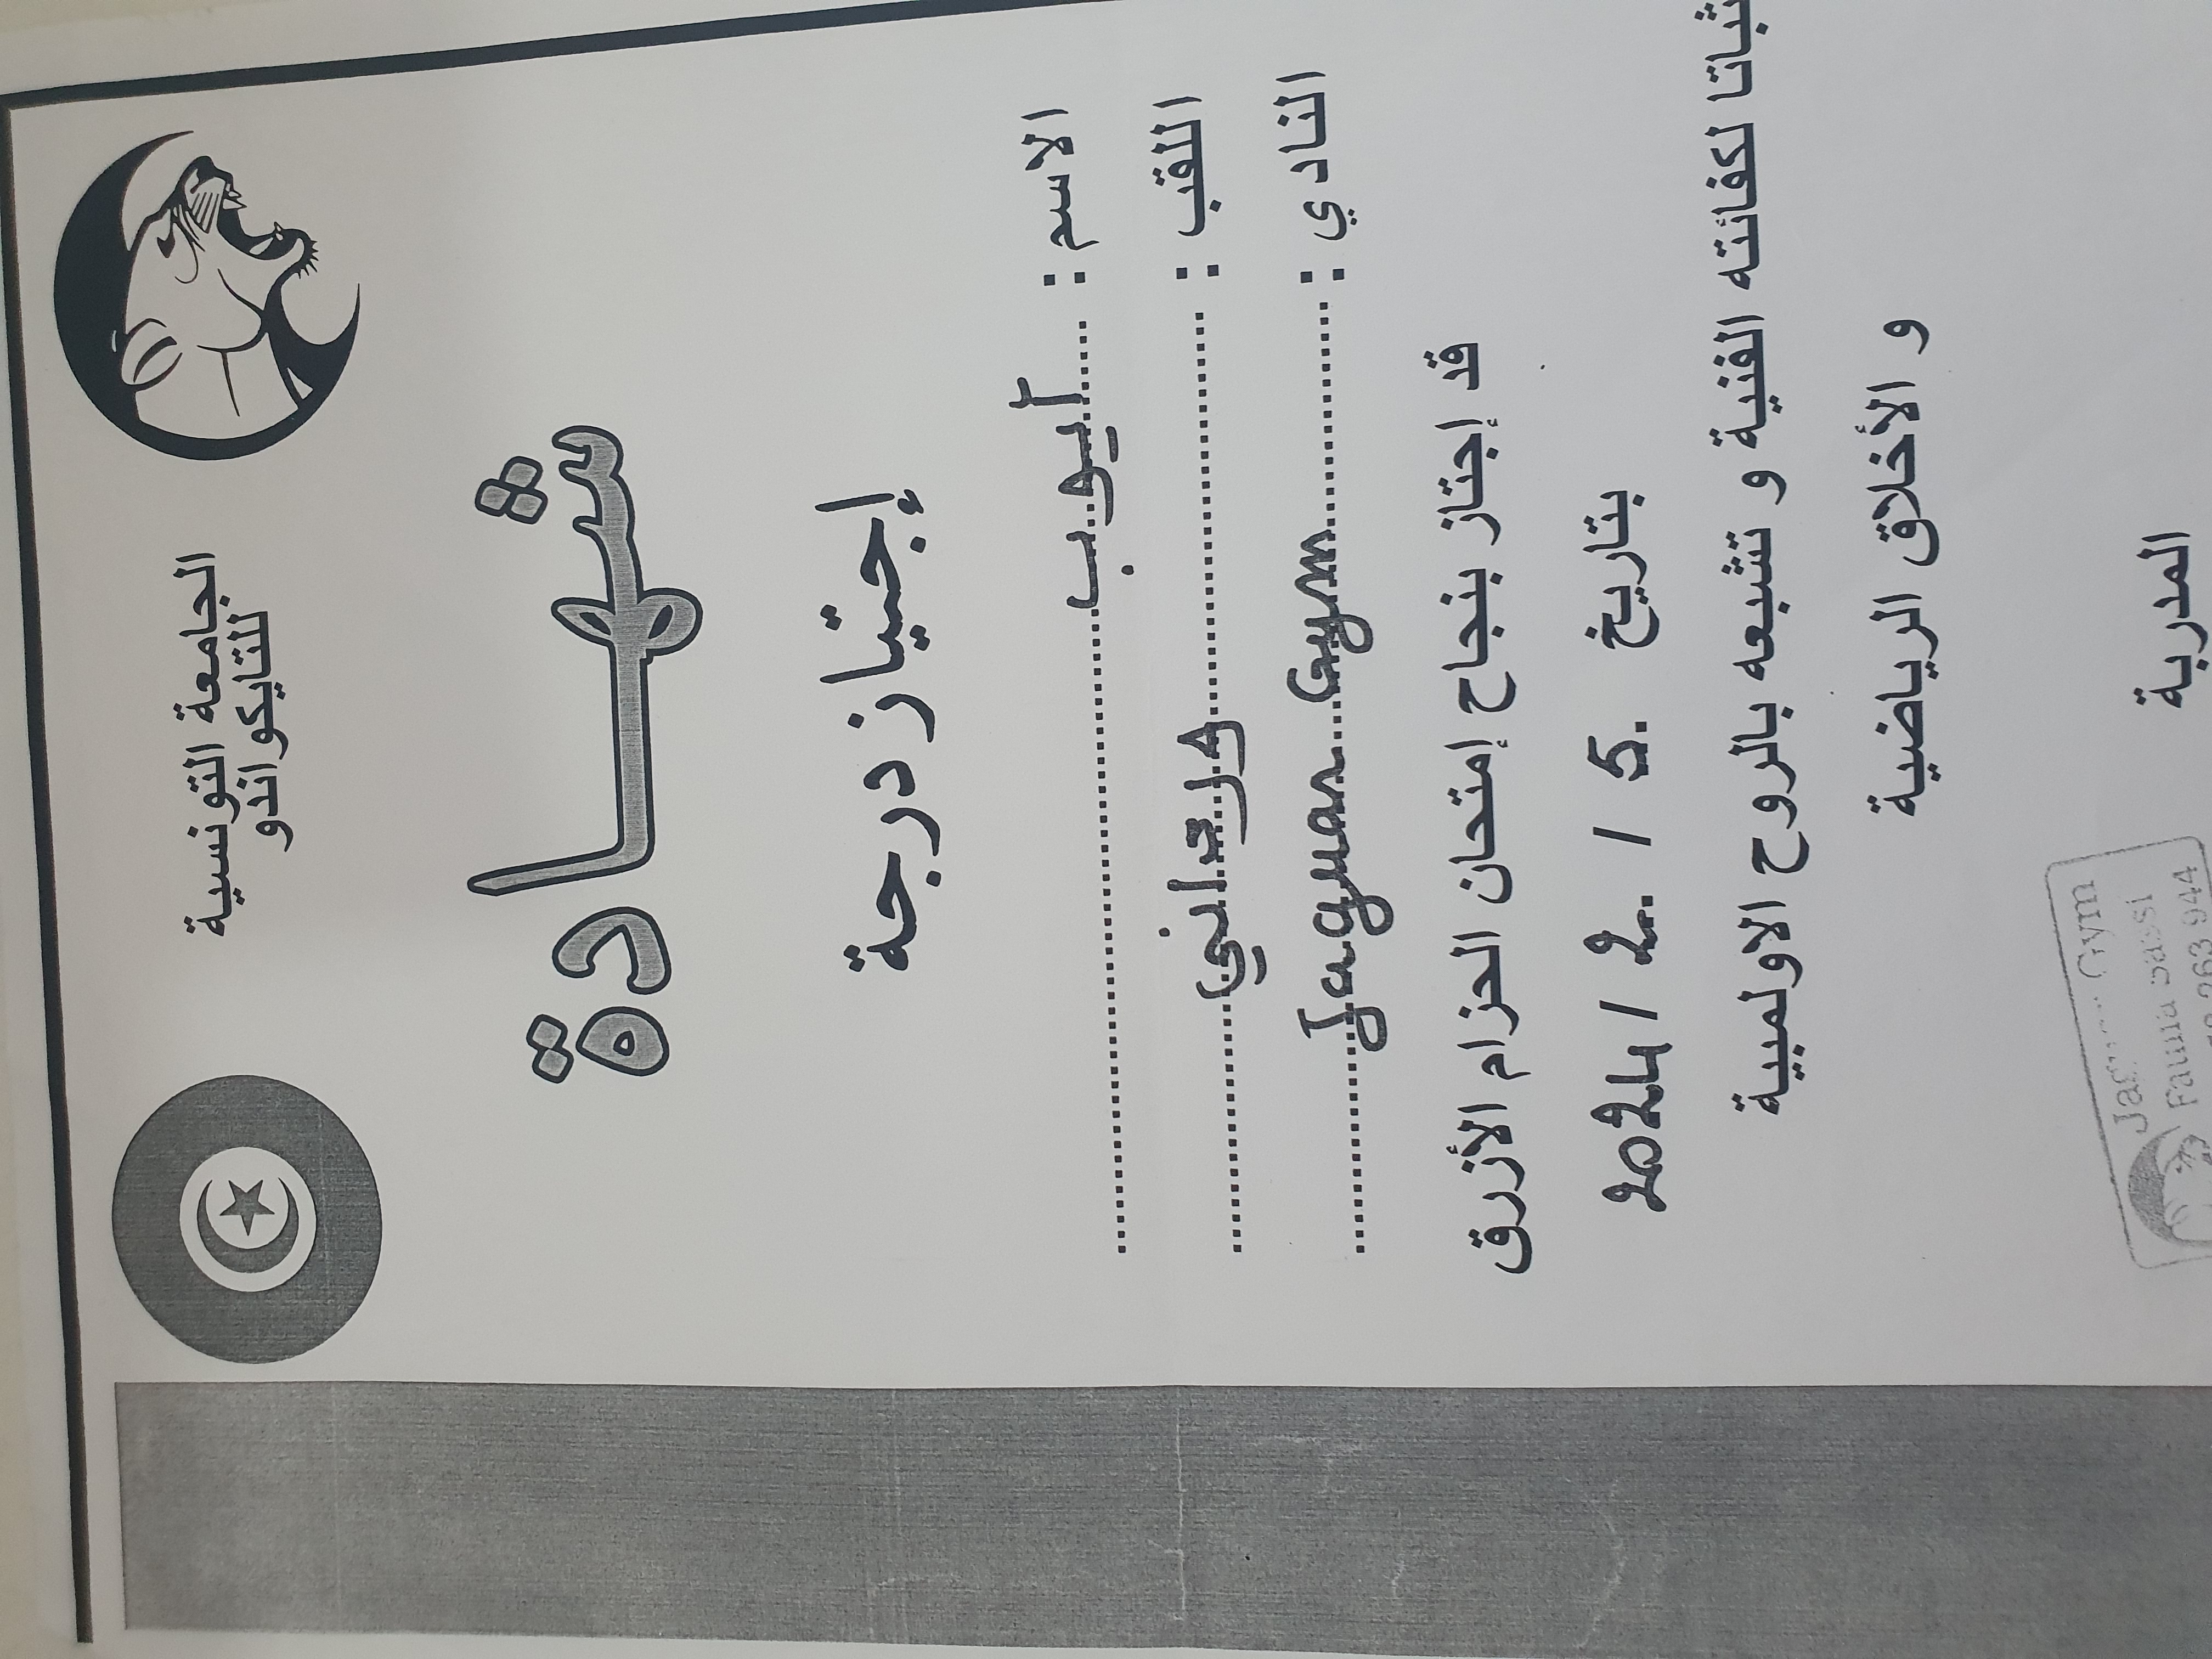 الجامعة التونسية
للتايكواندو
شهادة
إجتياز درجة
الاسم : أيوب
القب : ورتاني
النادي : Jaguar Gym
قد إجتاز بنجاح إمتحان الحزام الأزرق
بتاريخ 5 / 2 / 2024
ثباتا لكفائته الفنية و تشبعه بالروح الاولمبية
و الأخلاق الرياضية
المدربة
Gym
Fawzia Sassi
263 944